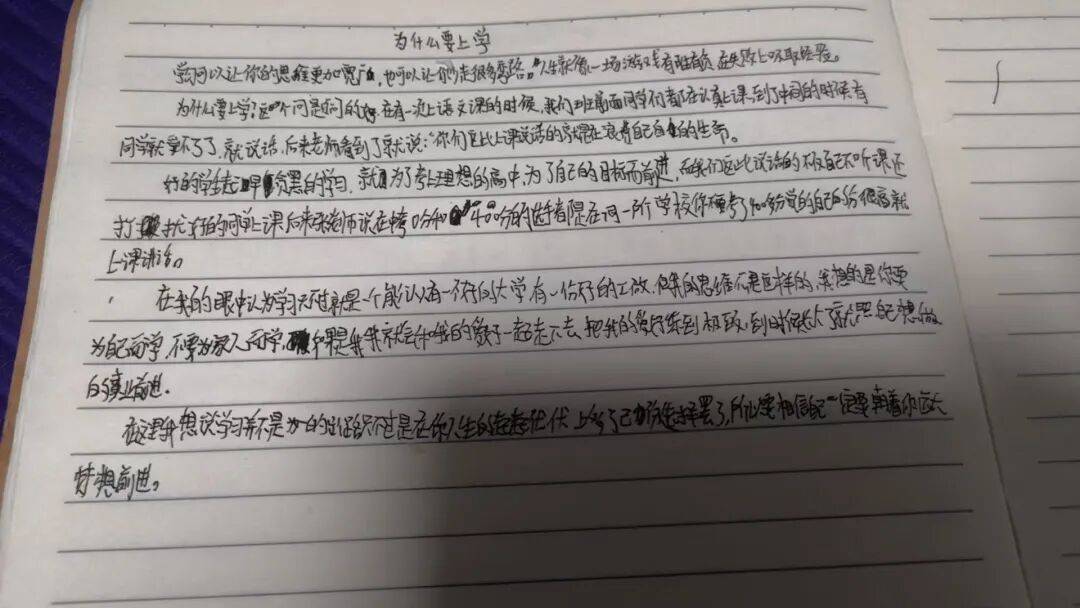 为什么要上学
学问可以让你的思维更加宽广,也可以让你少走很多弯路。"人生就像一场游戏有胜有负,在失败上吸取经验。
为什么要上学,这个问题问的 在有一次上语文课的时候,我们班后面同学们都在认真上课,到了中间的时候有
同学就受不了了,就说话,后来老师看到了就说:"你们这些上课说话的就是在浪费自己的生命。
好的学生起早贪黑的学习,就为了考上理想的高中,为了自己的目标而前进,而我们这些说话的不仅自己不听课还
打扰 的同学上课后来 老师说在考0分和 400分的 都是在同一所学校你 考了400多分觉的自己的分很高就
上课讲话。
在我的眼中认为学习不过就是一个能 有一 好的大学有一份好的工做,但我的思维不是这样的,我想的是你要
为自己而学,不要为家人而学, 如果是我我就会 我的 一起走下去,把我的 练到极致,到时候 就照自己想做
的事业前进。
在这里我想说学习并不是 一的 只不过是在你人生的 上 了 罢了,所以要相信自己一定要朝着你的
梦想前进。